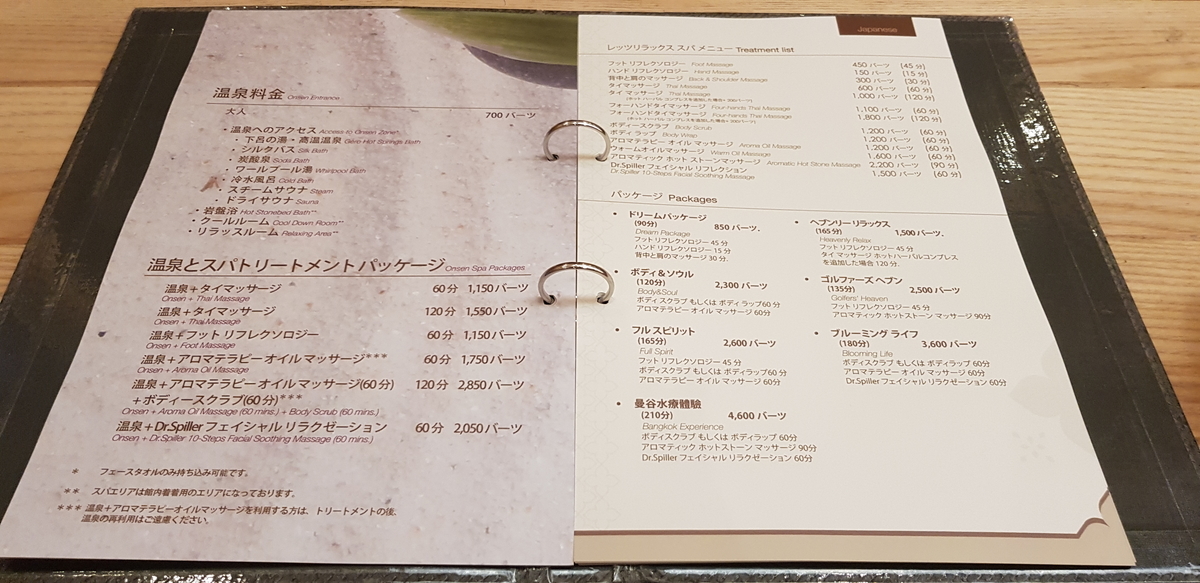 温泉料金 Onsen Entrance
大人 700 バーツ
・温泉へのアクセス Access to Onsen Zone*
・下呂の湯・高温温泉 Gero Hot Springs Bath
・シルクバス Silk Bath
・炭酸泉 Soda Bath
・ワールプール湯 Whirlpool Bath
・冷水風呂 Cold Bath
・スチームサウナ Steam
・ドライサウナ Sauna
・岩盤浴 Hot Stonebed Bath**
・クールルーム Cool Down Room**
・リラッスルーム Relaxing Area**
温泉とスパトリートメント パッケージ Onsen Spa Packages
温泉＋タイマッサージ 60分 1,150バーツ
Onsen + Thai Massage
温泉＋タイマッサージ 120分 1,550バーツ
Onsen + Thai Massage
温泉＋フット リフレクソロジー 60分 1,150バーツ
Onsen + Foot Massage
温泉＋アロマテラピー オイル マッサージ*** 60分 1,750バーツ
Onsen + Aroma Oil Massage
温泉＋アロマテラピー オイル マッサージ(60分) 120分 2,850バーツ
＋ボディースクラブ(60分)***
Onsen + Aroma Oil Massage (60 mins.) + Body Scrub (60 mins.)
温泉＋Dr.Spiller フェイシャル リラクゼーション 60分 2,050バーツ
Onsen + Dr.Spiller 10-Steps Facial Soothing Massage (60 mins.)
* フェースタオルのみ持ち込み可能です。
** スパエリアは館内着着用のエリアになっております。
*** 温泉＋アロマテラピーオイルマッサージを利用する方は、トリートメントの後、
温泉の再利用はご遠慮ください。
Japanese
レッツリラックス スパ メニュー Treatment list
フット リフレクソロジー Foot Massage 450 バーツ (45 分)
ハンド リフレクソロジー Hand Massage 150 バーツ (15 分)
背中と肩のマッサージ Back & Shoulder Massage 300 バーツ (30 分)
タイ マッサージ Thai Massage 600 バーツ (60 分)
タイ マッサージ Thai Massage 1,000 バーツ (120 分)
フォーハンドタイマッサージ Four-hands Thai Massage 1,100 バーツ (60 分)
フォーハンドタイマッサージ Four-hands Thai Massage 1,800 バーツ (120 分)
ボディースクラブ Body Scrub 1,200 バーツ (60 分)
ボディ ラップ Body Wrap 1,200 バーツ (60 分)
アロマテラピー オイル マッサージ Aroma Oil Massage 1,200 バーツ (60 分)
ウォームオイルマッサージ Warm Oil Massage 1,600 バーツ (60 分)
アロマティック ホット ストーンマッサージ Aromatic Hot Stone Massage 2,200 バーツ (90 分)
Dr.Spiller フェイシャル リフレクション 1,500 バーツ (60 分)
Dr.Spiller 10-Steps Facial Soothing Massage
パッケージ Packages
・ドリームパッケージ
(90分) 850 バーツ.
Dream Package
フット リフレクソロジー 45 分
ハンド リフレクソロジー 15 分
背中と肩のマッサージ 30 分.
・ヘブンリー リラックス
(165分) 1,500 バーツ.
Heavenly Relax
フット リフレクソロジー 45 分
タイ マッサージ ホットハーバルコンプレス
を追加した場合 120 分.
・ボディ＆ソウル
(120分) 2,300 バーツ
Body&Soul
ボディ スクラブ もしくは ボディラップ60 分
アロマテラピー オイル マッサージ 60分
・ゴルファーズ ヘブン
(135分) 2,500 バーツ
Golfers' Heaven
フット リフレクソロジー 45 分
アロマティック ホットストーン マッサージ 90分
・フル スピリット
(165分) 2,600 バーツ
Full Spirit
フット リフレクソロジー 45 分
ボディスクラブ もしくは ボディラップ60 分
アロマテラピー オイル マッサージ 60分
・ブルーミング ライフ
(180分) 3,600 バーツ
Blooming Life
ボディスクラブ もしくは ボディラップ 60分
アロマテラピー オイル マッサージ 60分
Dr.Spiller フェイシャル リラクゼーション 60分
・曼谷水療體驗
(210分) 4,600 バーツ
Bangkok Experience
ボディスクラブ もしくは ボディラップ 60分
アロマティック ホットストーン マッサージ 90分
Dr.Spiller フェイシャル リラクゼーション 60分